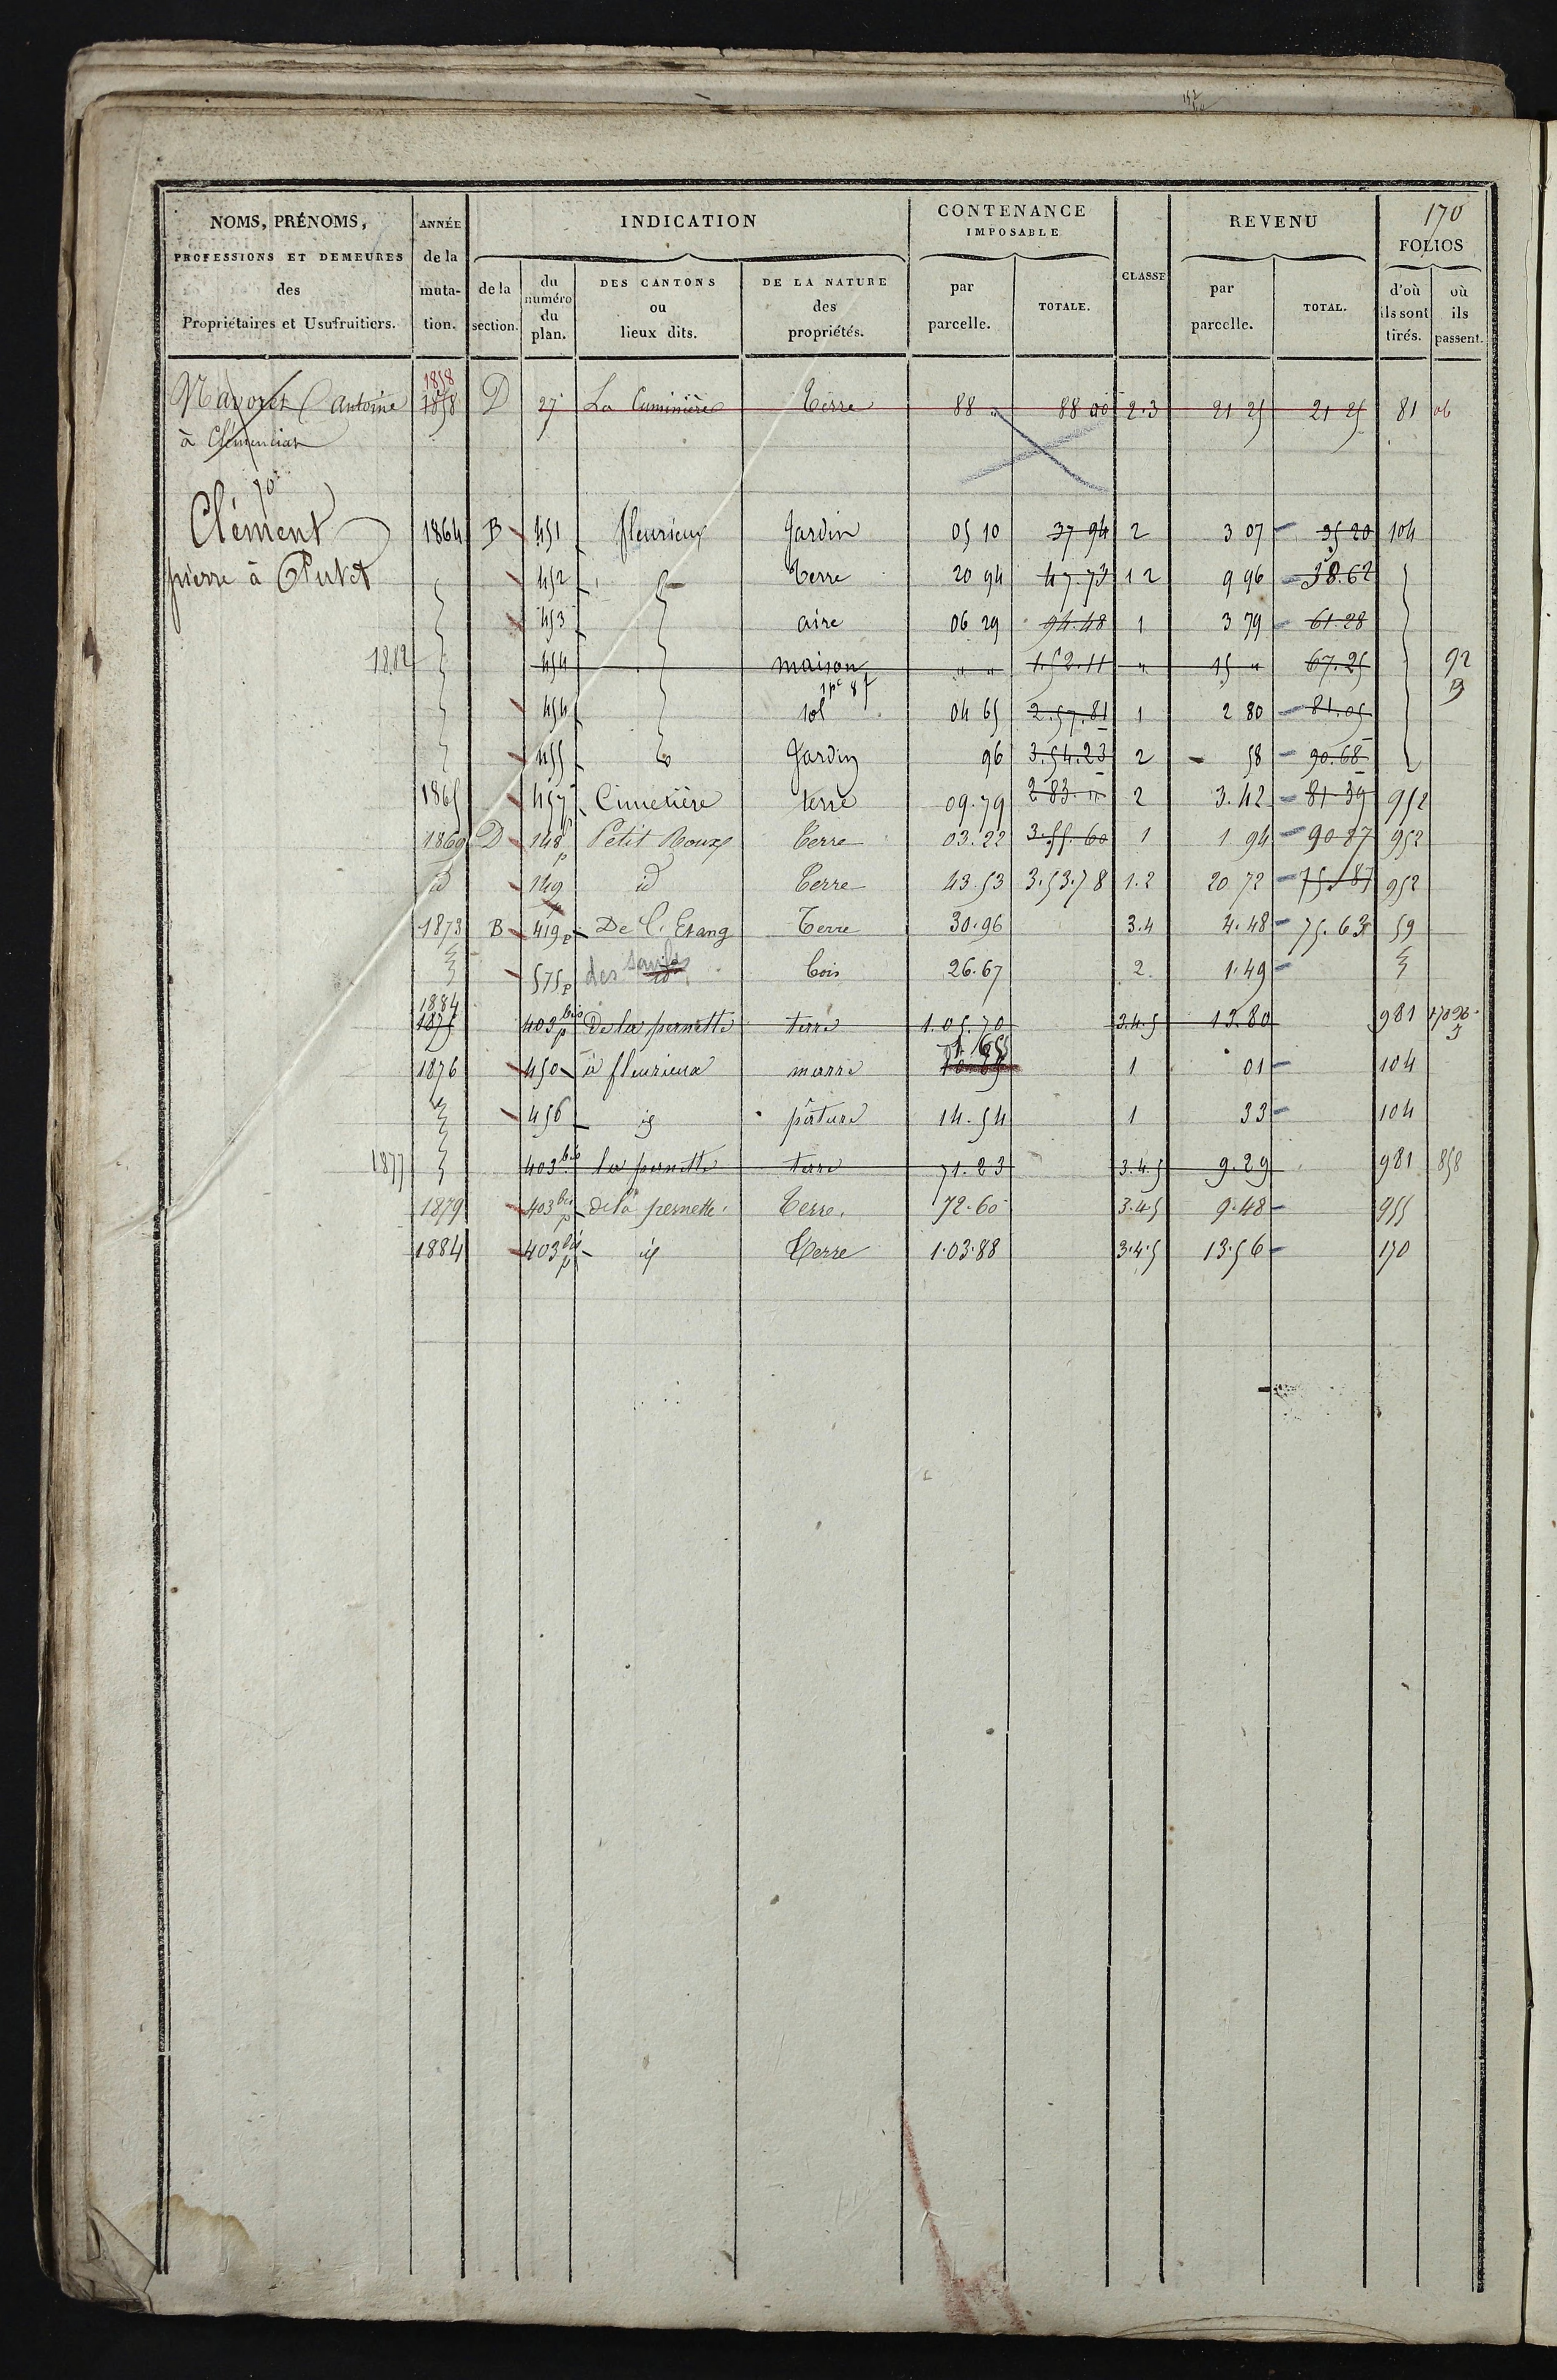 170
NOMS, PRÉNOMS, PROFESSIONS ET DEMEURES des Propriétaires et Usufruitiers.
ANNÉE de la muta- tion.
INDICATION
de la section.
du numéro du plan.
DES CANTONS ou lieux dits.
DE LA NATURE des propriétés.
CONTENANCE IMPOSABLE
par parcelle.
TOTALE.
CLASSE
REVENU
par parcelle.
TOTAL.
FOLIOS
d'où ils sont tirés.
où ils passent.
1858
antoine 1858 D 27 La Cuminière Terre 88 " 88 00 2.3 21 25 21 25 81
à Clémencian
Clément 1864 B 451 fleurieux Jardin 05 10 37 94 2 3 07 35 20 104
pierre à 452 Terre 20 94 47.73 1 2 9 96 38.62
453 aire 06 29 94.48 1 3 79 61.28
1882 454 maison " " 1.52.11 " 15 " 67.25 92
454 sol 04 65 2.57.81 1 2 80 81.05
455 Jardin 96 3.54.23 2 58 90.68
1865 457 Cimetière terre 09.79 2 83 2 3.42 81 39 952
1869 D 148 p Petit Roux Terre 03.22 3.55.60 1 1 94 90 87 952
id 149 id Terre 43.53 3.53.78 1.2 20 72 75.87 952
1873 B 419 p De l'Etang Terre 30.96 3.4 4.48 75.63 59
575 p des bois 26.67 2. 1.49
1884
1875 403 bis p De la pernette terre 1.05.70 3.4.5 13.80 981
1876 450 à fleurieux marre 1 01 104
456 id pâture 14.54 1 33 104
1877 403 bis la pernette terre 71.23 3.4.5 9.29 981 858
1879 403 bis p de la pernette. Terre. 72.60 3.4.5 9.48 955
1884 403 bis p id Terre 1.03.88 3.4.5 13.56 170